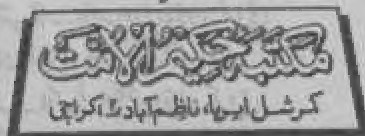 مکتبہ حکیم الامت
کمرشل ایریا، ناظم آباد ۲ کراچی